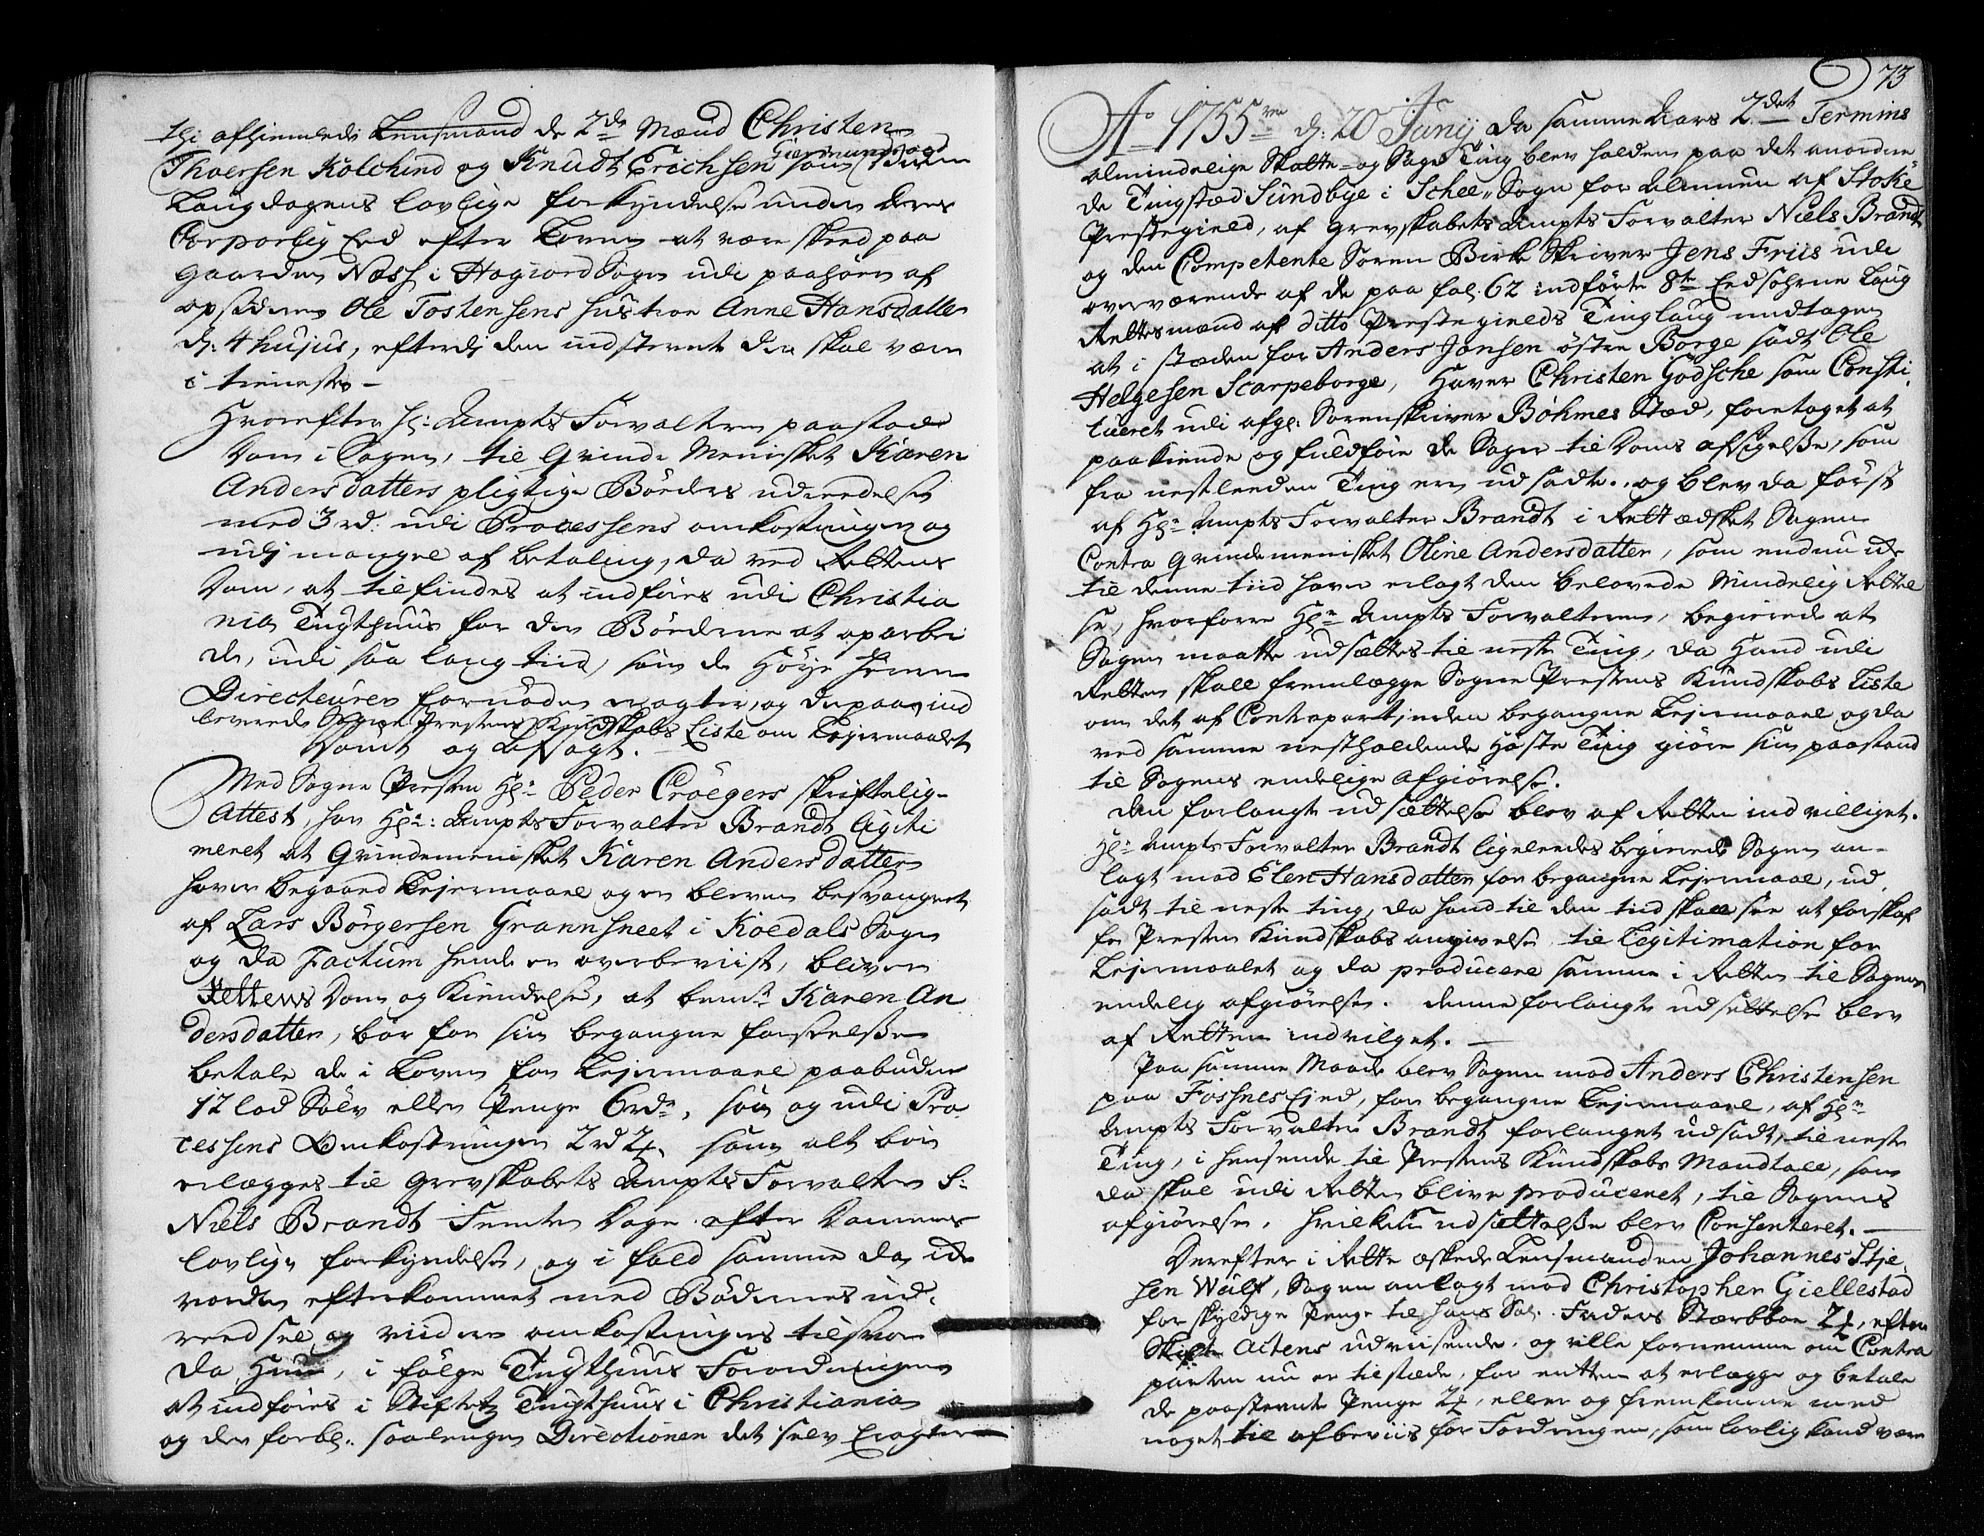 thi afhiemlede Lensmand de 2de Mænd Christen
Thoersen Kolckind og Knudt Erichsen Giermundrød som
Laugdagens lovlige forkyndelse under deres
Corporlig Eed efter Loven at være skeed paa
Gaarden Næss i Høgiord Sogn udi paahør af
opsidderen Ole Tostensens hustroe Anne Hansdatter
d: 4 hujus, efterdj den indstevnte der skal være
i tieneste –
Hvorefter Hr: Ampts Forvalteren paastod
Dom i Sagen, til Qvinde Mennisket Karen
Andersdatters pligtige Bøders udreedelse
med 3 rd. udi Processens omkostninger og
udj mangel af betaling, da ved Rettens
Dom, at tilfindes at indføres udi Christia
nia Tugthuus for der Bøderne at aparbei
de, udi saa lang tiid, som de Høye Herrer
Directeurer fornøden eragter, og derpaa ind
leverede Sogne Prestens Kundskabs Liste om Lejermaalet
Dømt og Afsagt.
Med Sogne Presten Hr: Peder Crøgers skriftelig
Attest, har Hr: Ampts Forvalter Brandt legiti
meret at Qvindemennisket Karen Andersdatter
haver begaaed Lejermaal og er bleven besvangret
af Lars Børgersen Grannsneet i Koedals Sogn
og da Factum hende er overbeviist, bliver
Rettens Dom og Kiendelse, at bemte Karen An
dersdatter, bør for sin begangne forseelse
betale de i Loven for Lejermaal paabudne
12 lod Sølv eller Penge 6 rdr, som og udi Pro
cessens Omkostninger 2 rd 2 , som alt bør
erlægges til Grevskabets Ampts Forvalter S:
Niels Brandt Femten Dage efter Dommens
lovlige forkyndelse, og i fald samme da icke
vorder efterkommet med Bødernes ud
reedsel og viidere omkostninger tilsvar
da Hun, i følge Tugthuus Forordningen
at indføres i Stiftetz Tugthuus i Christiania
og der forbl: saalenge Directionen det selv Eragter
73
Ao 1755ve d: 20 Junij da samme Aars 2det Termins
almindelige Skatte- og Sage Ting blev holden paa det anordne
de Tingstæd Sundbye i Schee Sogn for Almuen af Stoke
Prestegield, af Grevskabets Ampts Forvalter Niels Brandt
og den Competente Soren Birke Skriver Jens Friis udi
overværende af de paa fol. 62 indførte 8te Eedsohrne Laug
Rettesmænd af ditto Prestegields Tinglaug undtagen
at i stæden for Anders Jonsen østre Borge sadt Ole
Helgesen Scarpeborge, Haver Christen Godsche som Consti
tueret udi afgl: Sorenskriver Bøhmes Stæd, foretaget at
paakiende og fuldføre de Sager til Doms afsigelse, som
fra nestleeden Ting ere udsadte.. og blev da først
af Hr: Ampts Forvalter Brandt i Rett ædsket Sagen
Contra Qvindemennisket Oline Andersdatter, som endnu icke
til denne tiid haver erlagt den belovede Mindelig Rettel
se, hvorforre Hr: Ampts Forvalteren, begierede at
Sagen maatte udsættes til neste Ting, da Hand udi
Retten skall fremlægge Sogne Prestens Kundskabs Liste
om det af Contraparthinden begangne Lejermaal og da
ved samme nestholdende Høste Ting giøre sin paastand
til Sagens endelige Afgiørelse.
Den forlangte udsættelse blev af Retten indvilliget.
Hr: Ampts Forvalter Brandt ligeleedes begierede Sagen an-
lagt mod Elen Hansdatter for begangne Lejermaal, ud
sadt til neste ting, da hand til den tiid skall see at forskaf
fe Presten Kundskabs angivelse til Legitimation for
Lejermaalet og da producere samme i Retten til Sagens
endelig afgiørelse. denne forlangte udsættelse blev
af Retten indvilget. –
Paa samme Maade blev Sagen mod Anders Christensen
paa Foshnes Ejed, for begangne Lejermaal, af Hr:
Ampts Forvalter Brandt forlanget udsadt, til neste
Ting, i henseende til Prestens Kundskabs Mandtall, som
da skal udi Retten blive produceret, til Sagens
afgiørelse, hvilken udsættelse blev Consenteret. –
Derefter i Rette æskede Lensmanden Johannes Stje
sen Wulf, Sagen anlagt mod Christopher Giellestad
for skyldige Penge til hans Sal. Faders Stærboe 2 , efter
Skifte Actens udviisende, og ville fornemme om Contra
parten nu er tilstæde, for enten at erlægge og betale
de paastevnte Penge 2 , eller og fremkomme med
noget til afbeviis for Fordringen, som lovlig kand være